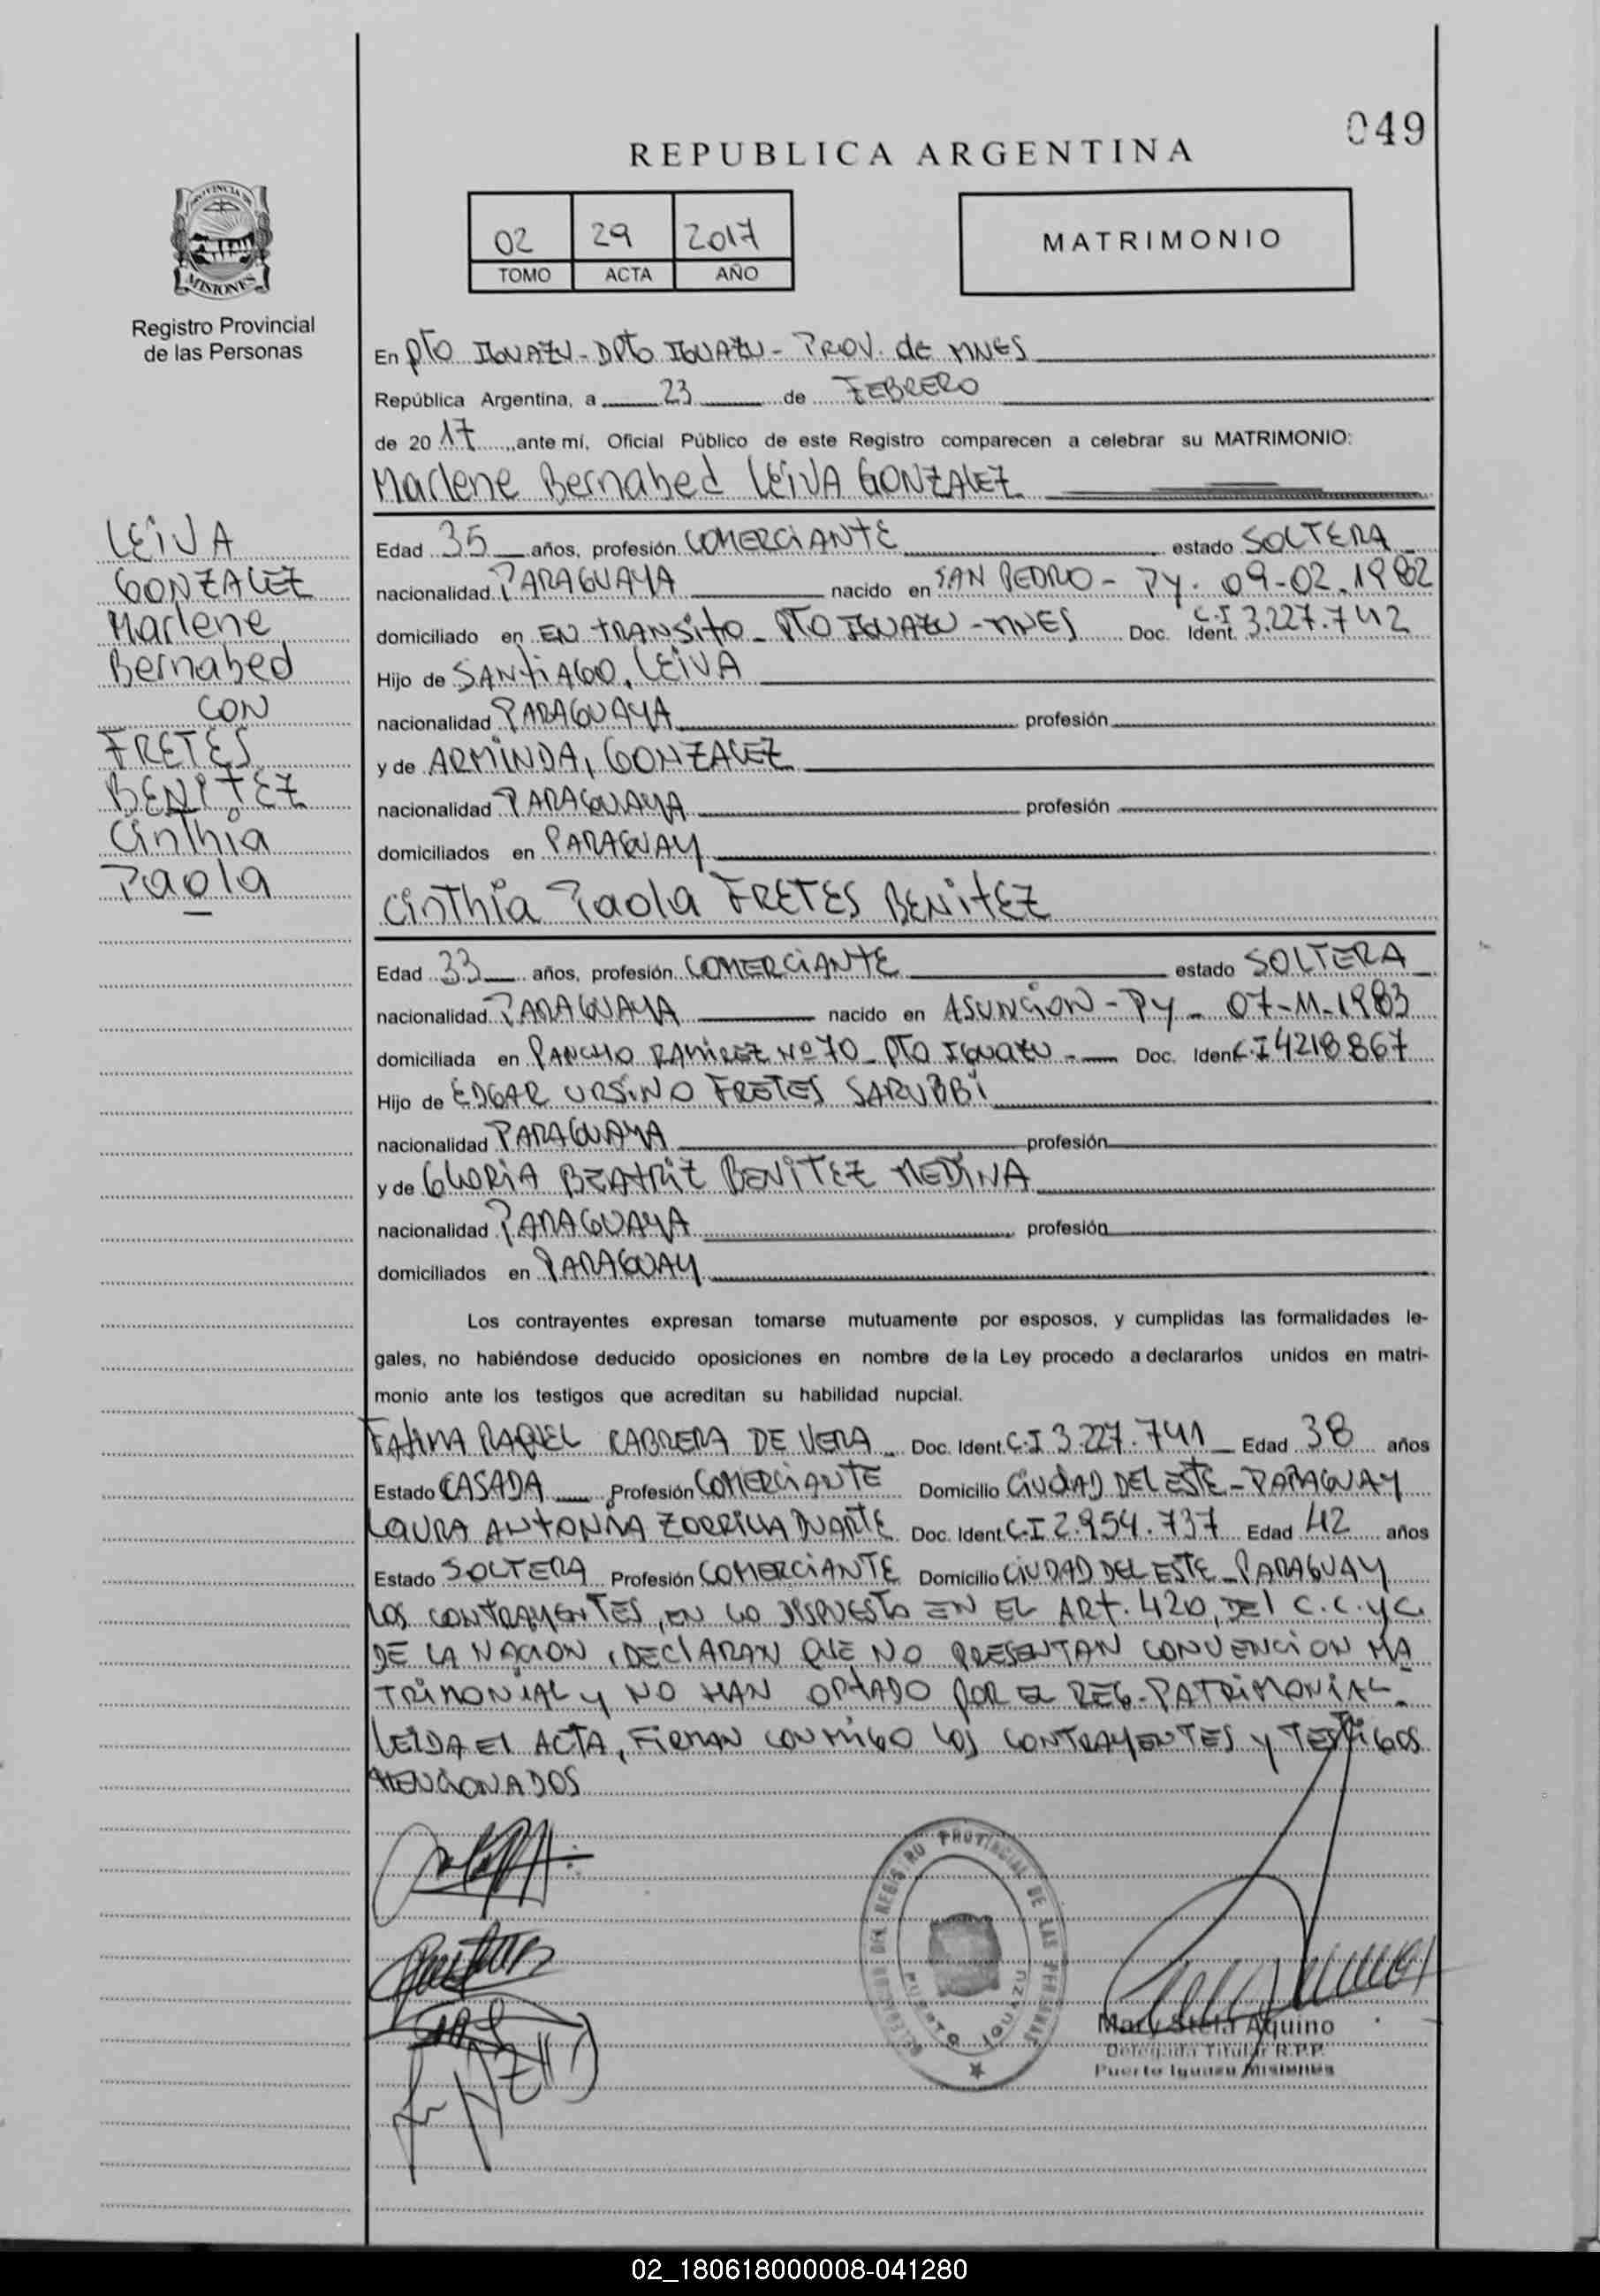 049
REPUBLICA ARGENTINA
PROVINCIA DE
MISIONES
Registro Provincial
de las Personas
02 29 2017
TOMO ACTA AÑO
MATRIMONIO
En pto IGUAZU - DPto IGUAZU - PROV. de MNES
República Argentina, a 23 de FEBRERO
de 20 17 ,ante mí, Oficial Público de este Registro comparecen a celebrar su MATRIMONIO:
Marlene Bernabed LEIVA GONZALEZ
LEIVA
GONZALEZ
Marlene
Bernabed
CON
FRETES
BENITEZ
Cinthia
Paola
Edad 35 años, profesión COMERCIANTE estado SOLTERA
nacionalidad PARAGUAYA nacido en SAN PEDRO - Py. 09-02.1982
domiciliado en EN TRANSITO - PTO IGUAZU - MNES Doc. Ident. C.I 3.227.742
Hijo de SANTIAGO, LEIVA
nacionalidad PARAGUAYA profesión
y de ARMINDA, GONZALEZ
nacionalidad PARAGUAYA profesión
domiciliados en PARAGUAY
Cinthia Paola FRETES BENITEZ
Edad 33 años, profesión COMERCIANTE estado SOLTERA
nacionalidad PARAGUAYA nacido en ASUNCION - Py - 07-11-1983
domiciliada en PANCHO RAMIREZ Nº 70 - PTO IGUAZU - Doc. Ident. C.I 4218867
Hijo de EDGAR URSINO FRETES SARUBBI
nacionalidad PARAGUAYA profesión
y de GLORIA BEATRIZ BENITEZ MEDINA
nacionalidad PARAGUAYA profesión
domiciliados en PARAGUAY
Los contrayentes expresan tomarse mutuamente por esposos, y cumplidas las formalidades le-
gales, no habiéndose deducido oposiciones en nombre de la Ley procedo a declararlos unidos en matri-
monio ante los testigos que acreditan su habilidad nupcial.
FATIMA RAQUEL CABRERA DE VERA - Doc. Ident. C.I 3.227.741 Edad 38 años
Estado CASADA Profesión COMERCIANTE Domicilio CIUDAD DEL ESTE - PARAGUAY
LAURA ANTONIA ZORRILLA DUARTE Doc. Ident. C.I 2.954.737 Edad 42 años
Estado SOLTERA Profesión COMERCIANTE Domicilio CIUDAD DEL ESTE - PARAGUAY
LOS CONTRAYENTES, EN LO DISPUESTO EN EL ART. 420, DEl C.C.yC.
DE LA NACION, DECLARAN QUE NO PRESENTAN CONVENCION MA
TRIMONIAL y NO HAN OPTADO POR EL REG. PATRIMONIAL.
LEIDA El ACTA, FIRMAN CONMIGO LOS CONTRAYENTES y TESTIGOS
MENCIONADOS
DEL REGISTRO PROVINCIAL DE LAS PERSONAS
PUERTO IGUAZU
Mary Stela Aquino
Delegada Titular R.P.P.
Puerto Iguazu Misiones
02_180618000008-041280